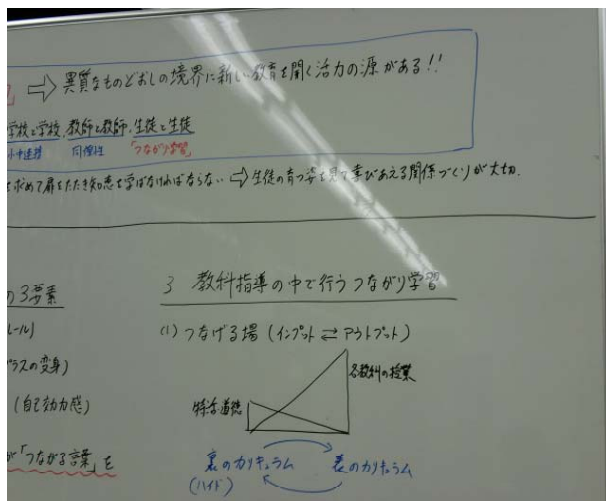 ⇨ 異質なものどおしの境界に新しい教育を開く活力の源がある!!
学校と学校, 教師と教師, 生徒と生徒
小中連携 同僚性 「つながり学習」
を求めて扉をたたき知恵を学ばなければならない ⇨ 生徒の育つ姿を見て喜びあえる関係づくりが大切.
の3要素
ルール)
プラスの変身)
(自己効力感)
が「つながる言葉」を
3 教科指導の中で行うつながり学習
(1) つなげる場 (インプット ⇄ アウトプット)
各教科の授業
特活道徳
裏のカリキュラム 表のカリキュラム